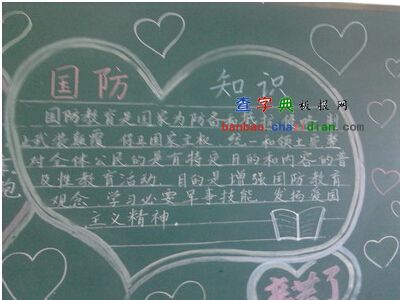 国防 知识
查字典板报网
banbao.chazidian.com
国防教育是国家为防备和抵抗侵略,制
止武装颠覆,保卫国家主权、统一和领土完整
对全体公民的是有特定目的和内容的普
及性教育活动,目的是增强国防教育
观念,学习必要军事技能,发扬爱国
主义精神。